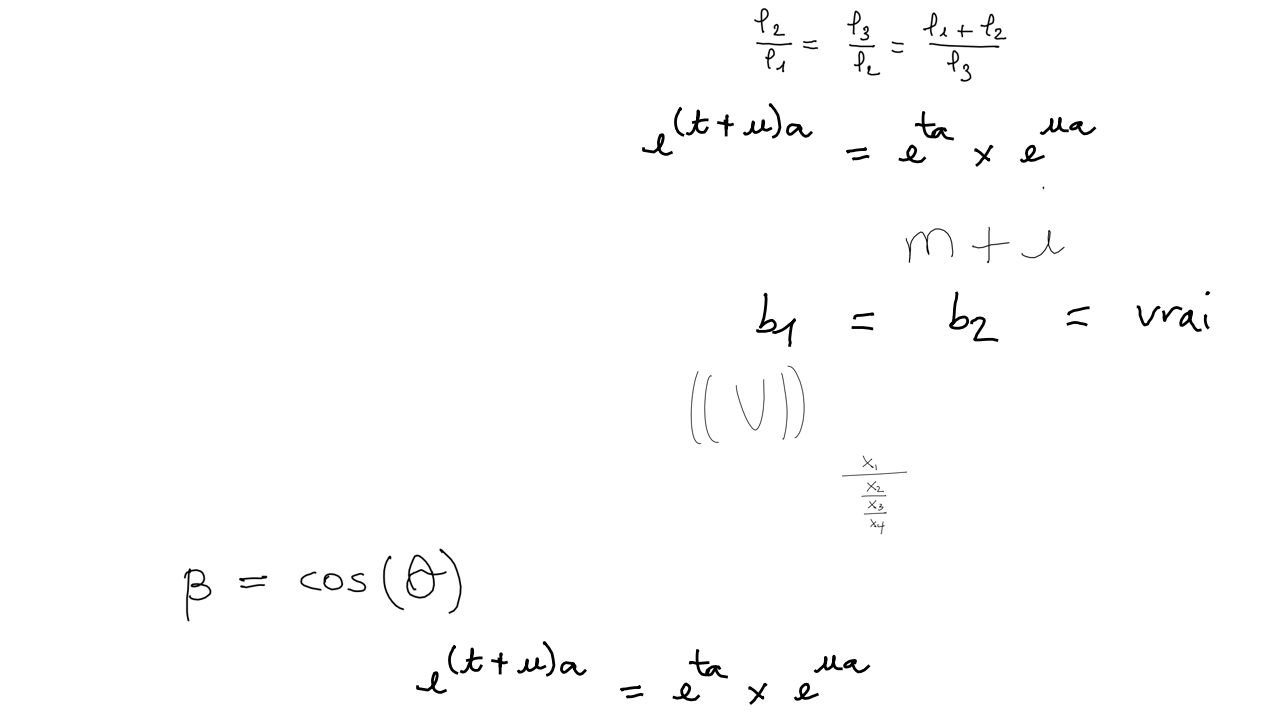 ℓ₂/ℓ₁ = ℓ₃/ℓ₂ = (ℓ₁ + ℓ₂)/ℓ₃
e^((t+u)a) = e^(ta) × e^(ua)
m + i
b₁ = b₂ = vrai
((V))
x₁/((x₂)/((x₃)/(x₄)))
β = cos(θ)
e^((t+u)a) = e^(ta) × e^(ua)